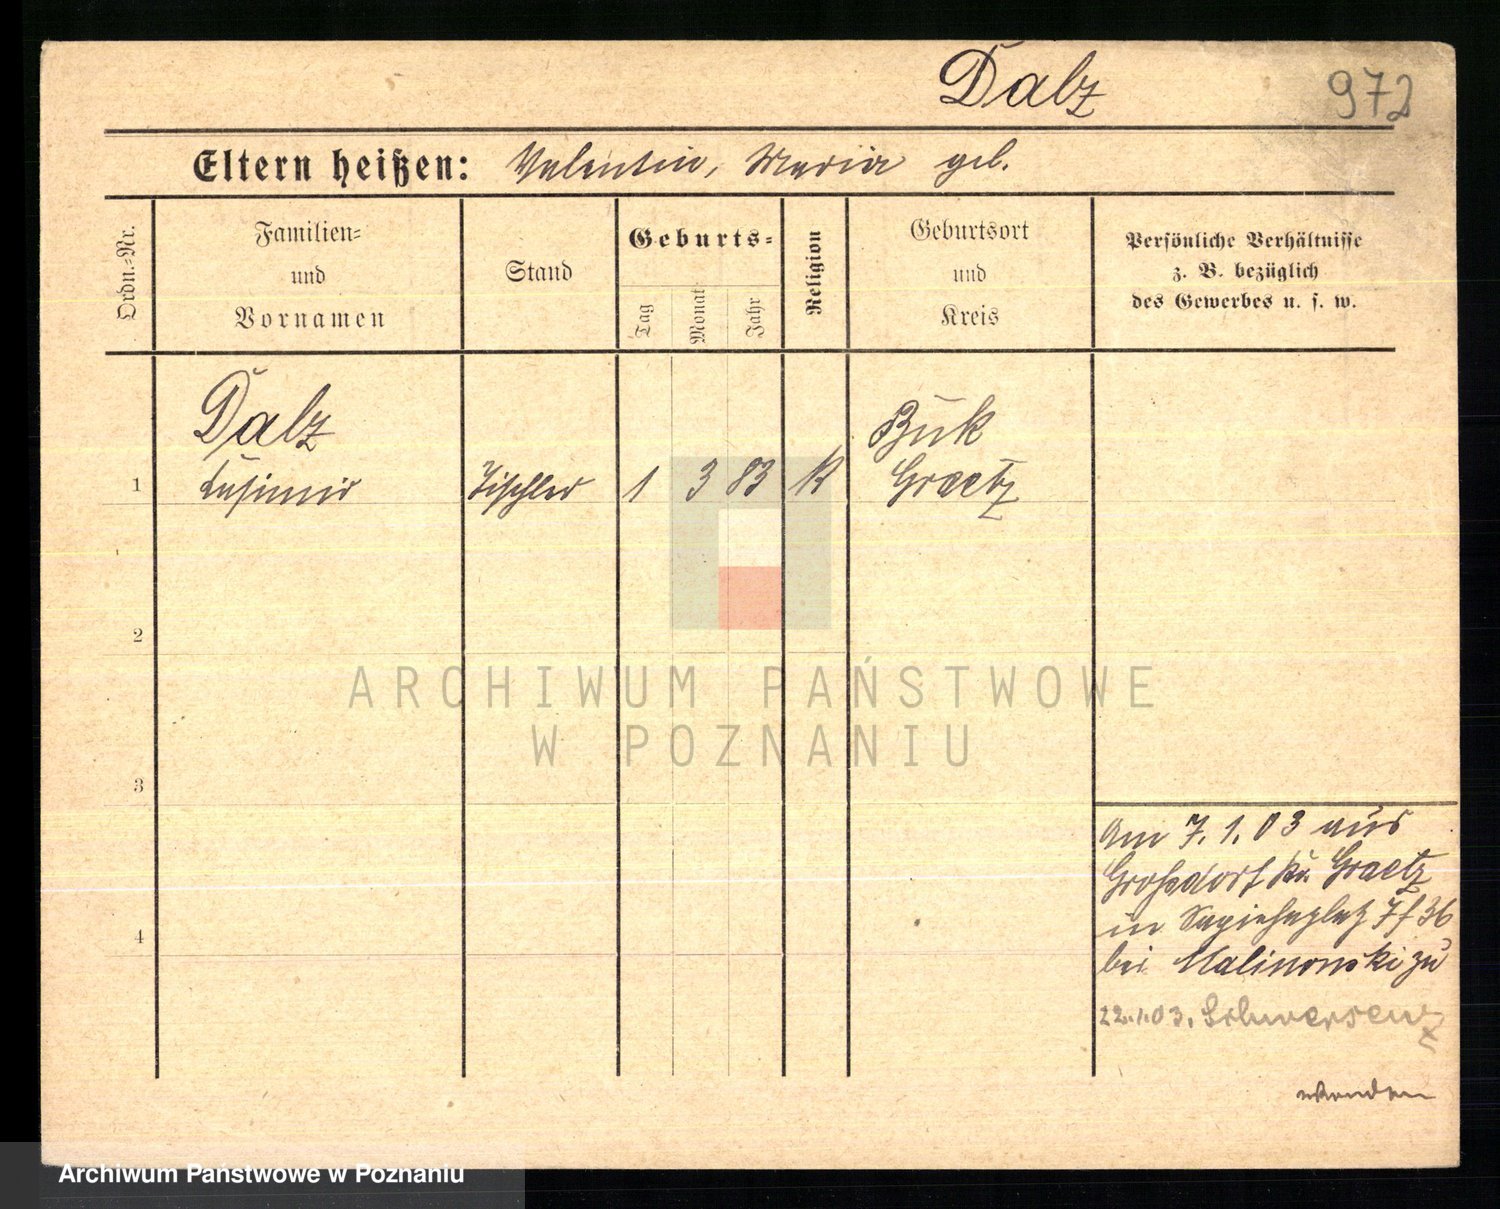 Dalz
972
Eltern heißen: Valentin, Maria geb.
Ordn.-Nr.
Familien-
und
Vornamen
Stand
Geburts-
Tag
Monat
Jahr
Religion
Geburtsort
und
Kreis
Persönliche Verhältnisse
z. B. bezüglich
des Gewerbes u. s. w.
Dalz
Buk
1 Kasimir Tischler 1 3 83 K Graetz
2
3
4
Am 7.1.03 aus
Grossdorf Kr. Graetz
in Sapiehaplatz 7
bei Malinowski zu
22.1.03. Schwersenz
wenden
ARCHIWUM PAŃSTWOWE
W POZNANIU
Archiwum Państwowe w Poznaniu